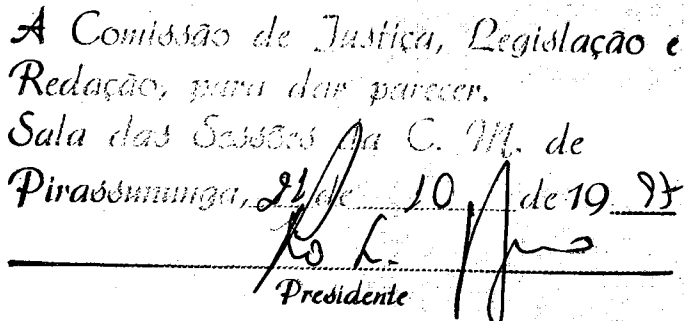 A Comissão de Justiça, Legislação e
Redação, para dar parecer.
Sala das Sessões da C. M. de
Pirassununga, 21 de 10 de 19 97
Presidente